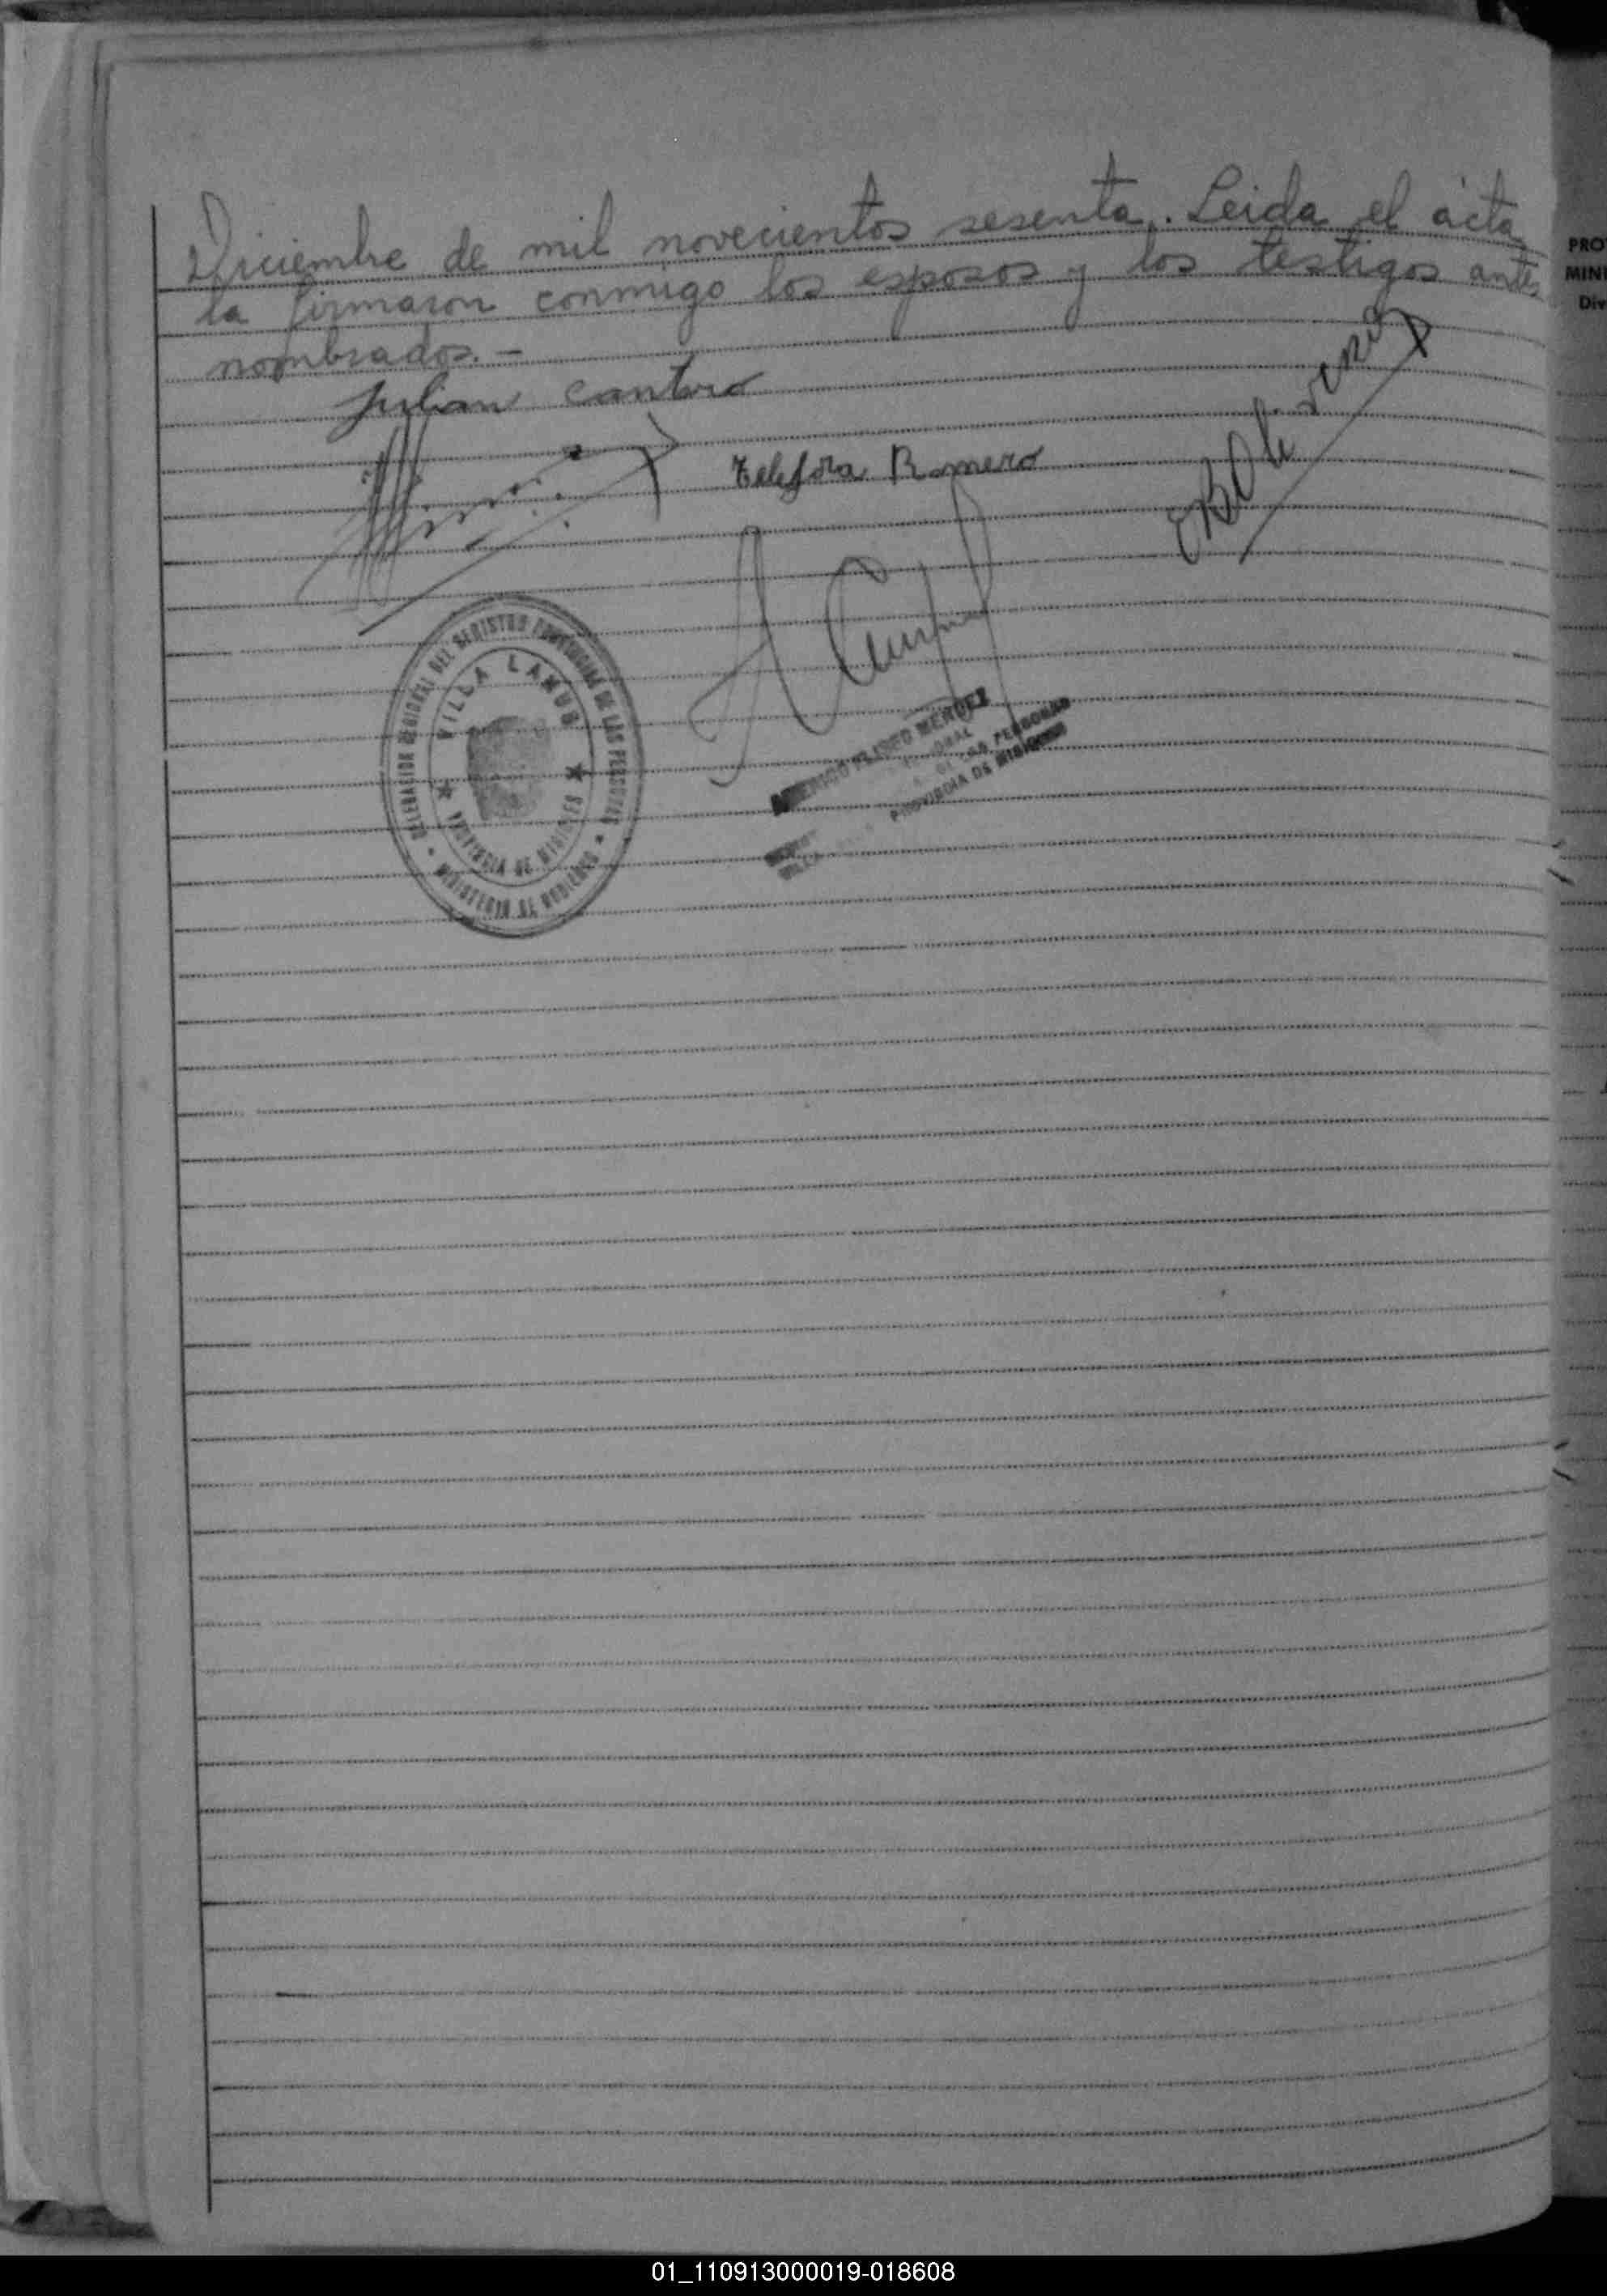 Diciembre de mil novecientos sesenta. Leida el ácta
la firmaron conmigo los esposos y los testigos ante,
nombrados.-
Julian Cantero
Telefora Romero
DELEGACION REGIONAL DEL REGISTRO PROVINCIAL DE LAS PERSONAS
VILLA LANUS
PROVINCIA DE MISIONES
MINISTERIO DE GOBIERNO
ELISEO MENDEZ
DE LAS PERSONAS
PROVINCIA DE MISIONES
PRO
MINI
Div
01_110913000019-018608